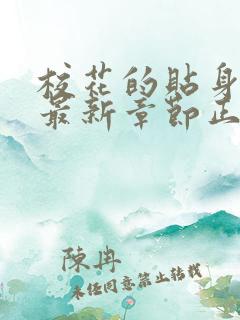 校花的貼身
最新章節正
陳冉
未經同意禁止轉載